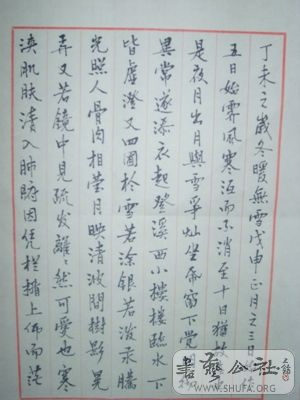 丁未之歲冬暖無雪戊申正月之三日
五日始霽風寒沍而不消至十日猶故在
是夜月出月與雪爭灿坐齋窗下覺
異常遂添衣起登溪西小樓樓臨水下
皆虛澄又四圍於雪若塗銀若潑汞騰
光照人骨肉相莹月映清波間樹影晃
弄又若鏡中見疏发離離然可愛也寒
浹肌膚清入肺腑因凭栏楯上仰而茫
書藝公社
WWW.SHUFA.ORG